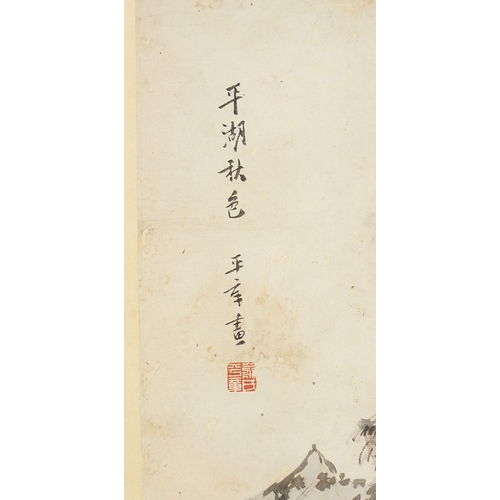 平湖秋色 平章畫